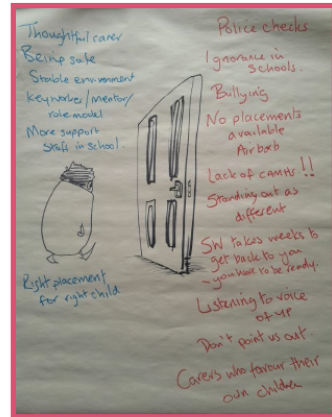 Thoughtful carer
Being safe
Stable environment
Keyworker/Mentor/
role model
More support
Staff in school
Right placement
for right child
Police checks.
Ignorance in
schools.
Bullying
No placements
available
Airbnb
Lack of CAMHs !!
Standing out as
different
SW takes weeks to
get back to you
- you have to be ready.
Listening to voice
of YP
Don't point us out.
Carers who favour their
own children